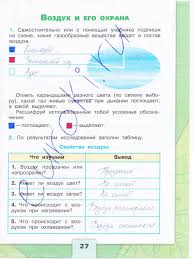 Воздух и его охрана
1. Самостоятельно или с помощью учебника подпиши
на схеме, какие газообразные вещества входят в состав
воздуха.
Кислород
Углекислый газ
Азот
Отметь карандашами разного цвета (по своему выбо-
ру), какой газ живые существа при дыхании поглощают
и какой выделяют.
Расшифруй использованные тобой условные обозна-
чения.
— поглощают;
— выделяют.
2. По результатам исследований заполни таблицу.
Свойства воздуха
Что изучаем
Вывод
1. Воздух прозрачен или
непрозрачен?
Прозрачен
2. Имеет ли воздух цвет?
Не имеет
3. Имеет ли воздух запах?
Не имеет
4. Что происходит с воз-
духом при нагревании?
Воздух расширяется
5. Что происходит с воз-
духом при охлаждении?
Воздух сжимается
27